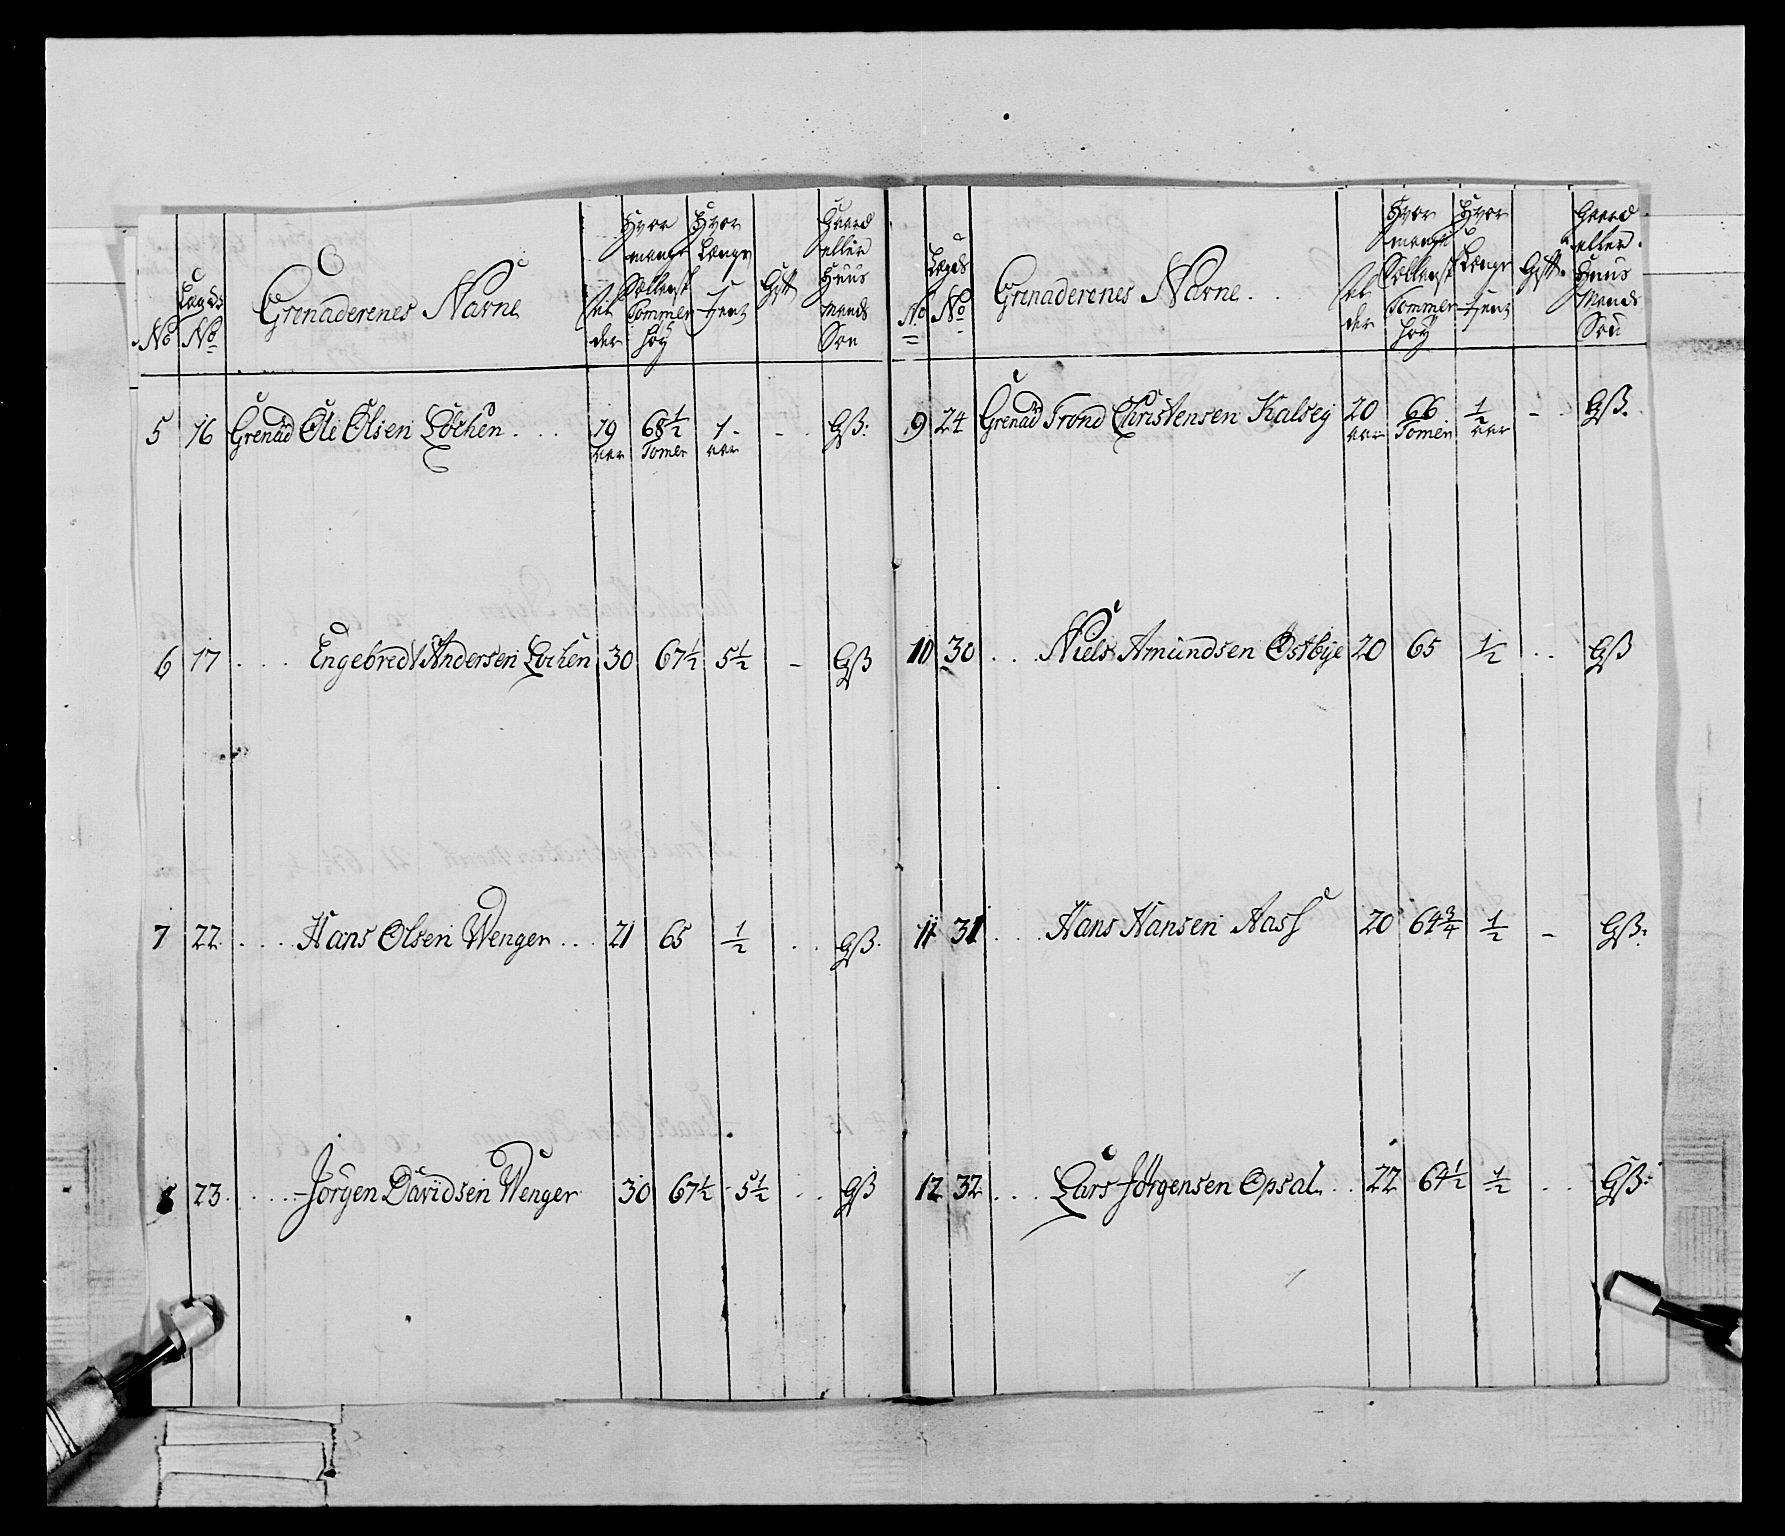 No
Lægds No
Grenaderenes Navne
Alder
Hvor mange Sællansk Tommer høÿ
Hvor Længe tient
Gift
Gaard eller Huus Mands Søn
5 16 Grenad Ole Olsen Løchen .... 19 aar 68½ Tomer 1 aar - Gß:
6 17 .... Engebredt Andersen Lochen 30 67½ 5½ - Gß
7 22 .... Hans Olsen Wenger ... 21 65 ½ .. Gß.
8 23 .... Jörgen Davidsen Wenger 30 67½ 5½ .. Gß
No
Lægds No
Grenaderenes Navne ...
Alder
Hvor mange Sællansk Tommer høÿ
Hvor Længe tient
Gift
Gaard eller Huus Mands Søn
9 24 Grenad Trond Christensen Kalseg 20 aar 66 Tomer ½ aar - Gß.
10 30 .... Niels Amundsen Ostbye 20 65 ½ .. Gß
11 31 .... Hans Hansen Aass 20 64¾ ½ - Gß:
12 32 ... Lars Jörgensen Opsal .. 22 64½ ½ .. Gß: